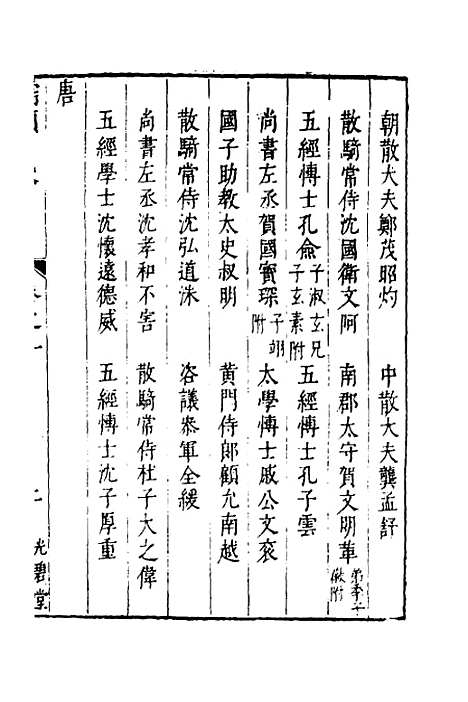 朝散大夫鄭茂昭灼　中散大夫龔孟舒
散騎常侍沈國衛文阿　南郡太守賀文明革弟季子徽附
五經博士孔僉子淑玄兄子玄素附　五經博士孔子雲
尚書左丞賀國寶琛子翊附　太學博士戚公文衮
國子助教太史叔明　黃門侍郎顧允南越
散騎常侍沈弘道洙　咨議叅軍全緩
尚書左丞沈孝和不害　散騎常侍杜子大之偉
五經學士沈懷遠德威　五經博士沈子厚重
唐
光碧堂